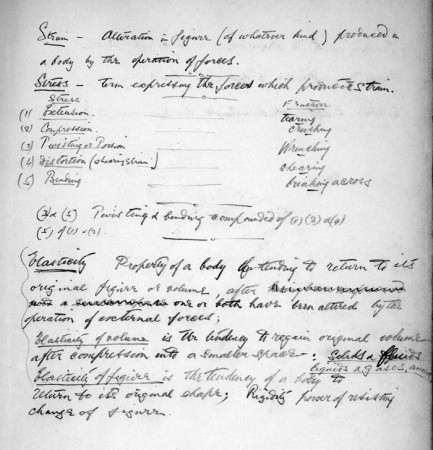 Strain – Alteration in figure (of whatever kind) produced in
a body by the operation of forces.
Stress – term expressing the forces which produce strain.
Stress Fracture
(1) Extension. tearing
(2) Compression. crushing
(3) Twisting or Torsion Wrenching
(4) Distortion (shearing strain) shearing
(5) Bending breaking across
(3) & (5) Twisting & bending compounded of (1) (2) & (4)
(5) of (1) & (2).
Elasticity Property of a body tending to return to its
original figure or volume, after
one or both have been altered by the
operation of external forces;
Elasticity of volume is the tendency to regain original volume
after compression into a smaller space – : Solids & fluids
liquids & gases,
Elasticity of figure is the tendency of a body to
return to its original shape; Rigidity power of resisting
change of figure.